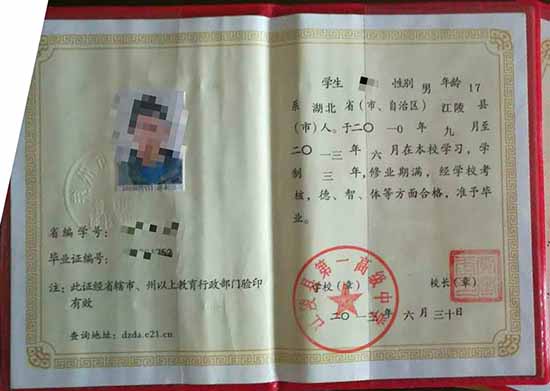 学生 性别 男 年龄 17
系 湖北 省(市、自治区) 江陵 县
(市)人。于二〇一〇年 九 月至
二〇一三年 六 月在本校学习,学
制 三 年,修业期满,经学校考
核,德、智、体等方面合格,准予毕
业。
省编学号:
毕业证编号:
注:此证经省辖市、州以上教育行政部门验印
有效
查询地址:dzda.e21.cn
江陵县第一高级中学
学校(章) 校长(章)
二〇一三年 六 月 三十日